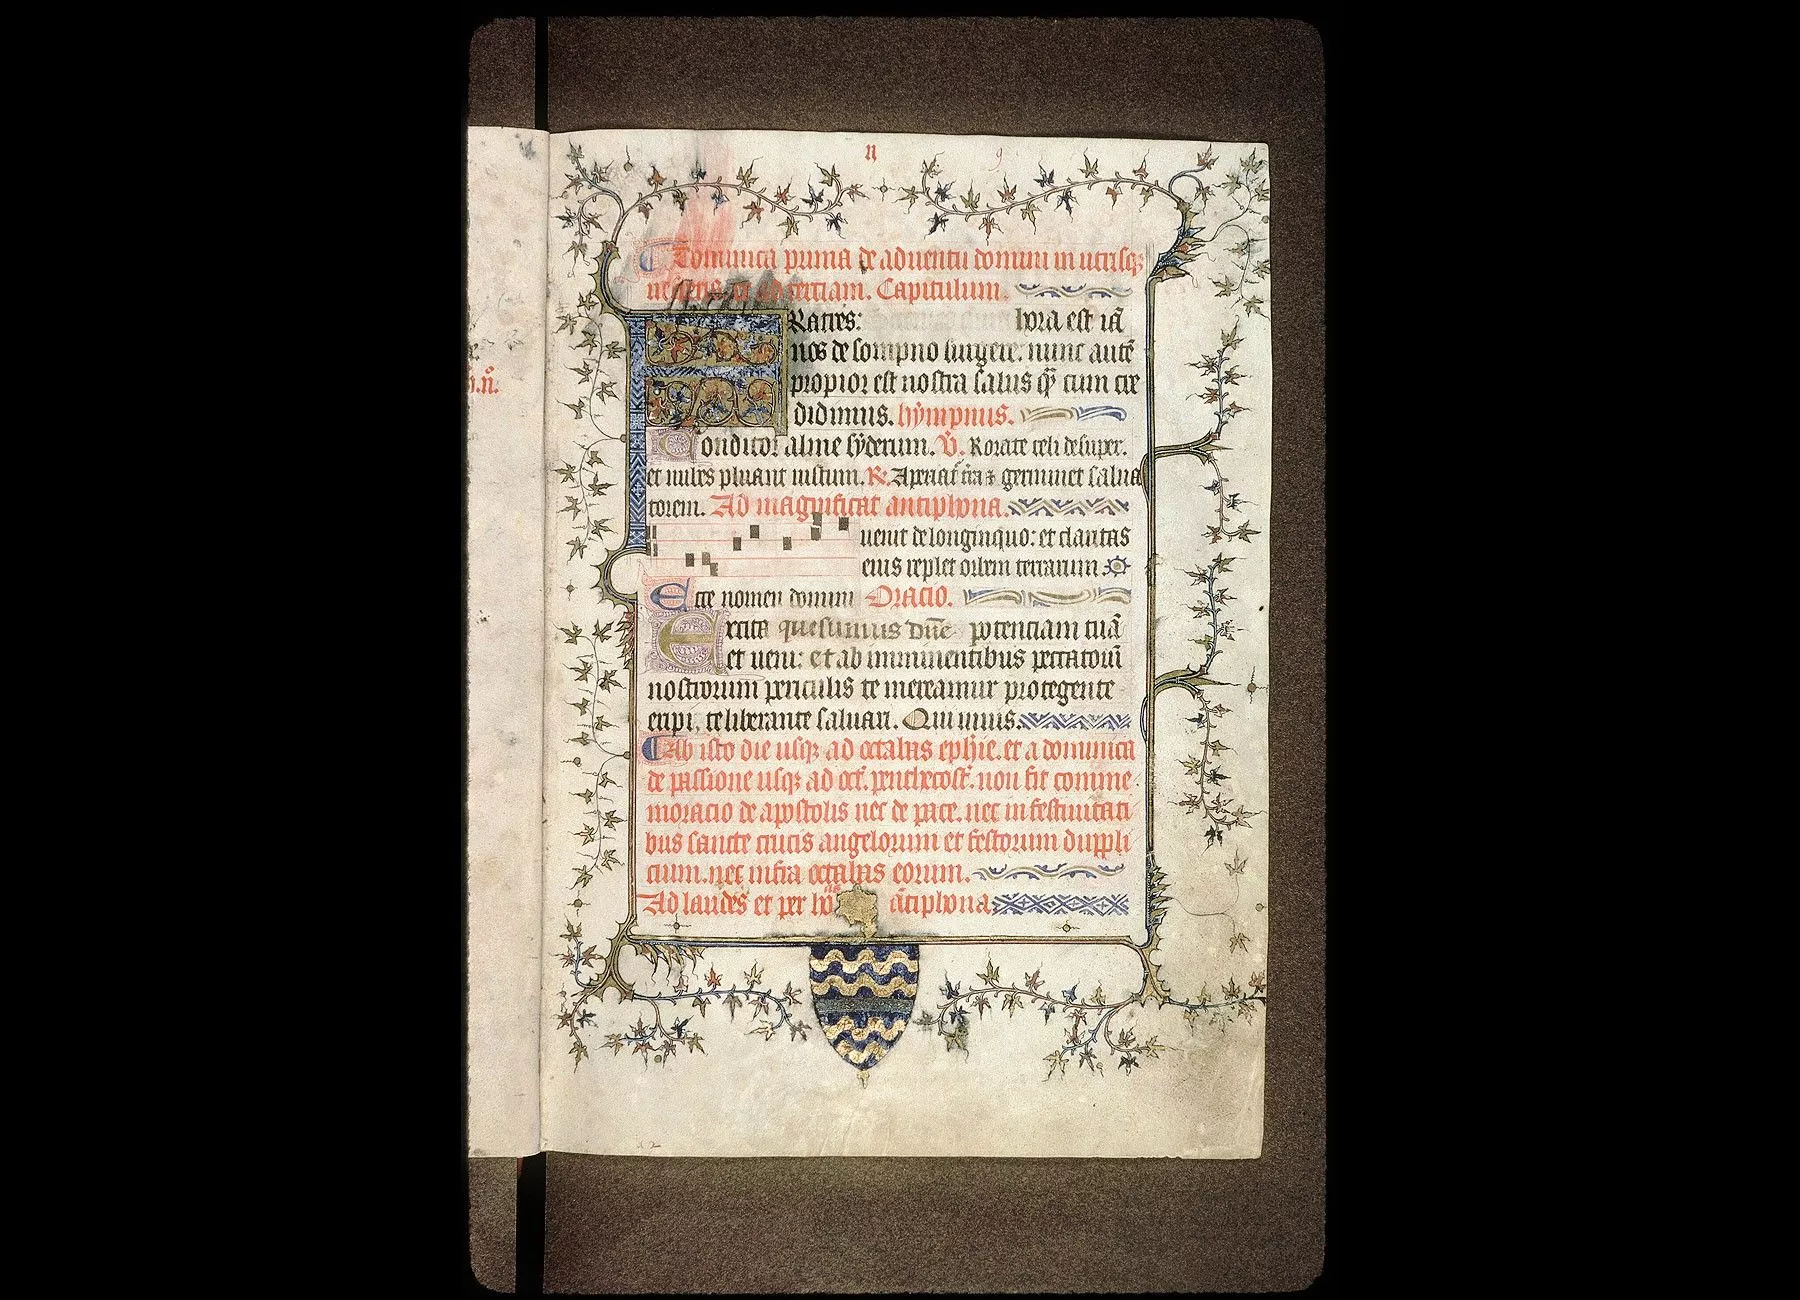 n
9
Dominica prima de aduentu domini in utrisq;
ad terciam. Capitulum.
Ratres: hora est iā
nos de sompno surgere. nunc autē
propior est nostra salus qͣ cum cre
didimus. hympnus.
n̄.
Conditor alme syderum. V̄. Rorate celi desuper.
et nubes pluant iustum. R̄. Aperiat̄ t̄ra ⁊ germinet salua
torem. Ad magnificat antiphona.
uenit de longinquo: et claritas
eius replet orbem terrarum
Ecce nomen domini Oracio.
Excita quesumus dn̄e potenciam tuā
et ueni: et ab imminentibus peccatorū
nostrorum periculis te mereamur protegente
eripi, te liberante saluari. Qui uiuis.
Ab isto die usq; ad octabas ephīe. et a dominica
de passione usq; ad oct̄. penthecost̄. non fit comme
moracio de apostolis nec de pace. nec in festiuitati
bus sancte crucis angelorum et festorum duppli
cium. nec infra octabas eorum.
Ad laudes et per ho ās āntiphona.